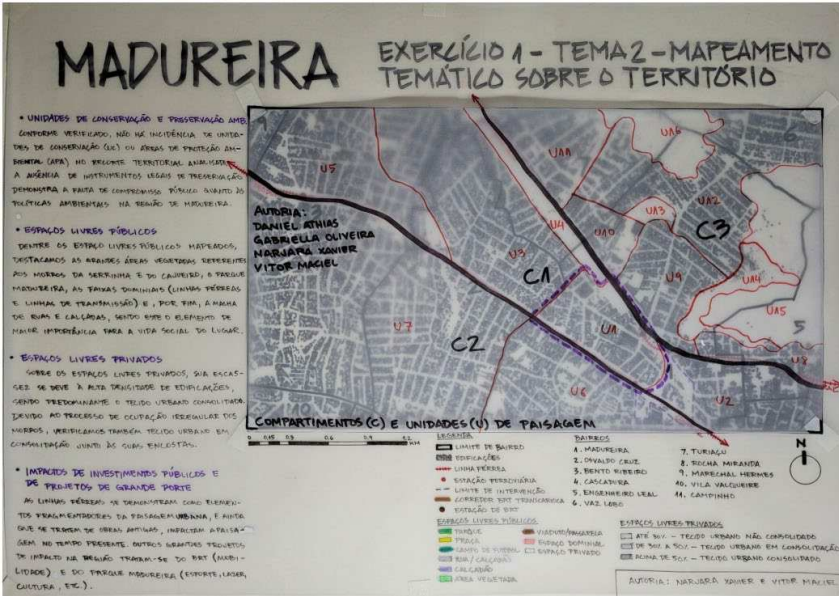 MADUREIRA
EXERCÍCIO 1 - TEMA 2 - MAPEAMENTO
TEMÁTICO SOBRE O TERRITÓRIO
• UNIDADES DE CONSERVAÇÃO E PRESERVAÇÃO AMB.
CONFORME VERIFICADO, NÃO HÁ INCIDÊNCIA DE UNIDA-
DES DE CONSERVAÇÃO (UC) OU ÁREAS DE PROTEÇÃO AM-
BIENTAL (APA) NO RECORTE TERRITORIAL ANALISADO.
A AUSÊNCIA DE INSTRUMENTOS LEGAIS DE PRESERVAÇÃO
DEMONSTRA A FALTA DE COMPROMISSO PÚBLICO QUANTO ÀS
POLÍTICAS AMBIENTAIS NA REGIÃO DE MADUREIRA.
• ESPAÇOS LIVRES PÚBLICOS
DENTRE OS ESPAÇO LIVRES PÚBLICOS MAPEADOS,
DESTACAMOS AS GRANDES ÁREAS VEGETADAS REFERENTES
AOS MORROS DA SERRINHA E DO CAJUEIRO, O PARQUE
MADUREIRA, AS FAIXAS DOMINIAIS (LINHAS FÉRREAS
E LINHAS DE TRANSMISSÃO) E, POR FIM, A MALHA
DE RUAS E CALÇADAS, SENDO ESTE O ELEMENTO DE
MAIOR IMPORTÂNCIA PARA A VIDA SOCIAL DO LUGAR.
• ESPAÇOS LIVRES PRIVADOS
SOBRE OS ESPAÇOS LIVRES PRIVADOS, SUA ESCAS-
SEZ SE DEVE À ALTA DENSIDADE DE EDIFICAÇÕES,
SENDO PREDOMINANTE O TECIDO URBANO CONSOLIDADO.
DEVIDO AO PROCESSO DE OCUPAÇÃO IRREGULAR DOS
MORROS, VERIFICAMOS TAMBÉM TECIDO URBANO EM
CONSOLIDAÇÃO JUNTO ÀS SUAS ENCOSTAS.
• IMPACTOS DE INVESTIMENTOS PÚBLICOS E
DE PROJETOS DE GRANDE PORTE
AS LINHAS FÉRREAS SE DEMONSTRAM COMO ELEMEN-
TOS FRAGMENTADORES DA PAISAGEM URBANA, E AINDA
QUE SE TRATEM DE OBRAS ANTIGAS, IMPACTAM A PAISA-
GEM NO TEMPO PRESENTE. OUTROS GRANDES PROJETOS
DE IMPACTO NA REGIÃO TRATAM-SE DO BRT (MOBI-
LIDADE) E DO PARQUE MADUREIRA (ESPORTE, LAZER,
CULTURA, ETC.).
AUTORIA:
DANIEL ATHIAS
GABRIELLA OLIVEIRA
NARJARA XAVIER
VITOR MACIEL
U5
U11
U16
6
U12
U13
U10
U4
C3
U3
C1
U9
U14
U15
5
U7
C2
U1
U8
U6
U2
COMPARTIMENTOS (C) E UNIDADES (U) DE PAISAGEM
0 0.15 0.3 0.6 0.9 1.2
KM
LEGENDA
LIMITE DE BAIRRO
EDIFICAÇÕES
LINHA FÉRREA
ESTAÇÃO FERROVIÁRIA
LIMITE DE INTERVENÇÃO
CORREDOR BRT TRANSCARIOCA
ESTAÇÃO DE BRT
ESPAÇOS LIVRES PÚBLICOS
PARQUE
PRAÇA
CAMPO DE FUTEBOL
RUA / CALÇADA
CALÇADÃO
ÁREA VEGETADA
VIADUTO/PASSARELA
ESPAÇO DOMINIAL
ESPAÇO PRIVADO
BAIRROS
1. MADUREIRA
2. OSVALDO CRUZ
3. BENTO RIBEIRO
4. CASCADURA
5. ENGENHEIRO LEAL
6. VAZ LOBO
7. TURIAÇU
8. ROCHA MIRANDA
9. MARECHAL HERMES
10. VILA VALQUEIRE
11. CAMPINHO
N
ESPAÇOS LIVRES PRIVADOS
ATÉ 30% - TECIDO URBANO NÃO CONSOLIDADO
DE 30% A 50% - TECIDO URBANO EM CONSOLIDAÇÃO
ACIMA DE 50% - TECIDO URBANO CONSOLIDADO
AUTORIA: NARJARA XAVIER E VITOR MACIEL